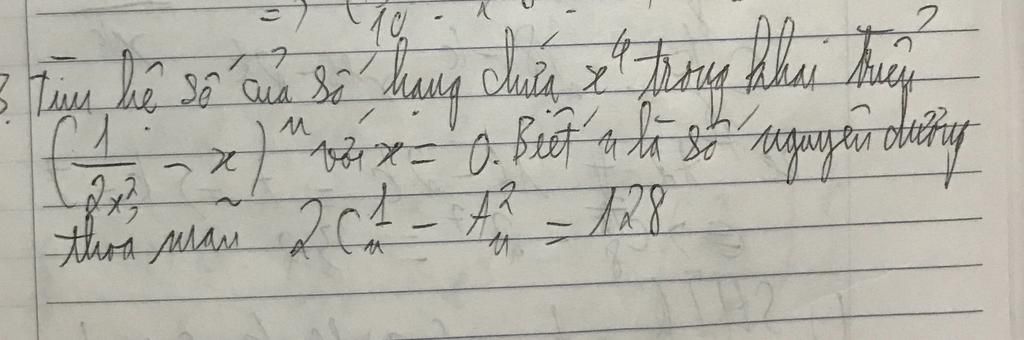 =) (10 - x
3. Tìm hệ số của số hạng chứa x⁴ trong khai triển
(1/2x² - x)ⁿ với x = 0. Biết n là số nguyên dương
thoả mãn 2C¹ₙ - A²ₙ = 128